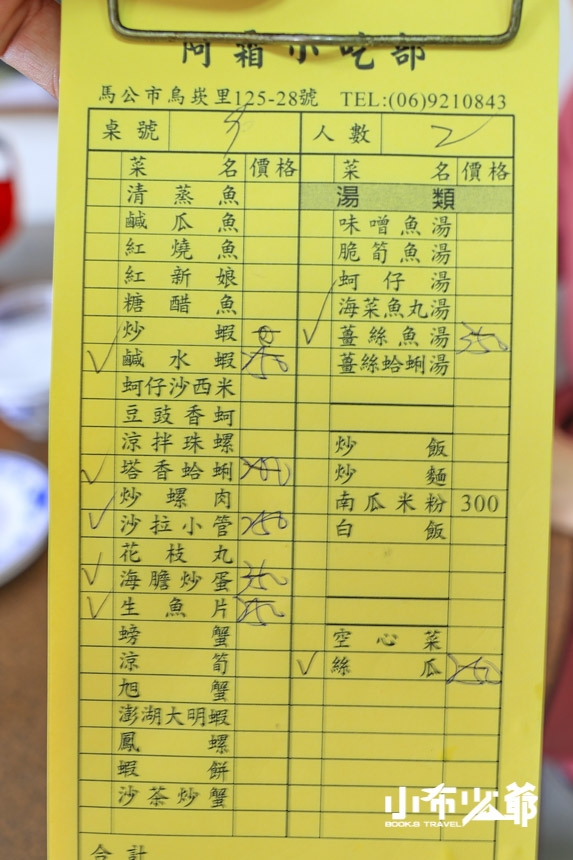 阿霜小吃部
馬公市烏崁里125-28號 TEL:(06)9210843
桌號 人數 2
菜名 價格 菜名 價格
清蒸魚
鹹瓜魚
紅燒魚
紅新娘
糖醋魚
炒蝦
✓ 鹹水蝦
蚵仔沙西米
豆豉香蚵
涼拌珠螺
✓ 塔香蛤蜊
炒螺肉
✓ 沙拉小管
花枝丸
✓ 海膽炒蛋
✓ 生魚片
螃蟹
涼筍
旭蟹
澎湖大明蝦
鳳螺
蝦餅
沙茶炒蟹
合計
湯類
味噌魚湯
脆筍魚湯
蚵仔湯
海菜魚丸湯
✓ 薑絲魚湯
薑絲蛤蜊湯
炒飯
炒麵
南瓜米粉 300
白飯
空心菜
✓ 絲瓜
小布少爺
BOOK.B TRAVEL